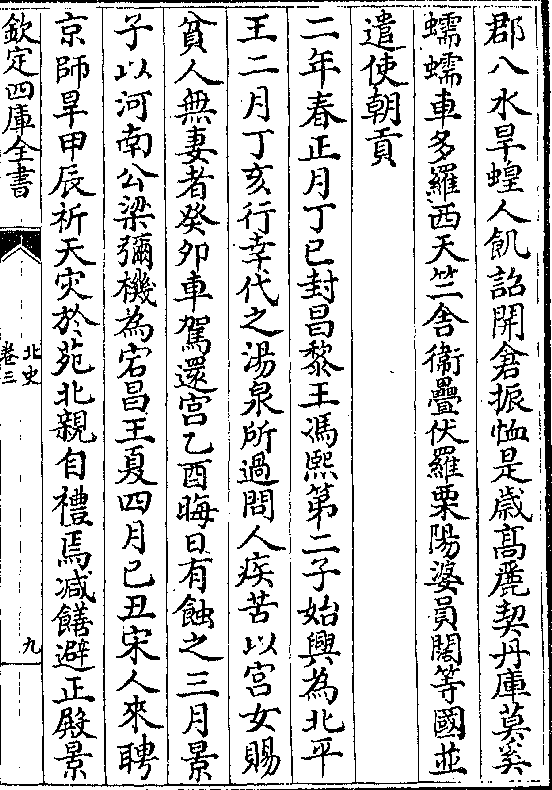 郡八水旱蝗人飢詔開倉振恤是歳髙麗契丹庫莫奚
蠕蠕車多羅西天竺舎衞疊伏羅栗陽婆員闊等國並
遣使朝貢
二年春正月丁巳封昌黎王馮熙第二子始興為北平
王二月丁亥行幸代之湯泉所過問人疾苦以宫女賜
貧人無妻者癸卯車駕還宫乙酉晦日有蝕之三月景
子以河南公梁彌機為宕昌王夏四月己丑宋人來聘
京師旱甲辰祈天灾於苑北親自禮焉减饍避正殿景
欽定四庫全書
北史
卷三
九